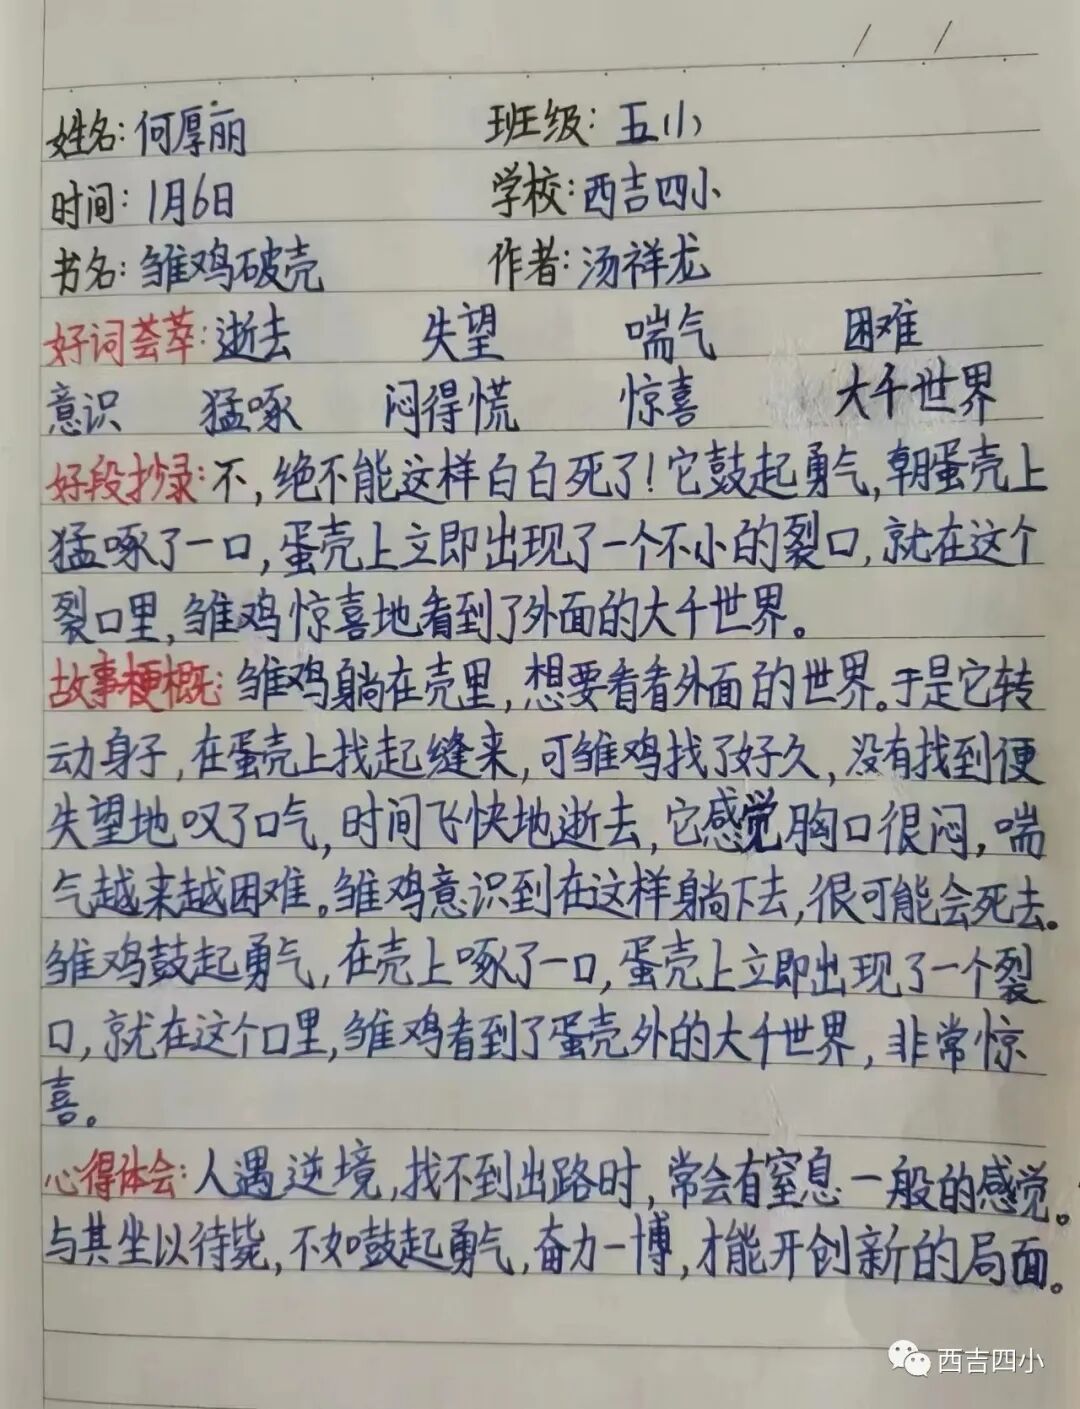 姓名:何厚丽 班级:五(1)
时间:1月6日 学校:西吉四小
书名:雏鸡破壳 作者:汤祥龙
好词荟萃:逝去 失望 喘气 困难
意识 猛啄 闷得慌 惊喜 大千世界
好段抄录:不,绝不能这样白白死了!它鼓起勇气,朝蛋壳上
猛啄了一口,蛋壳上立即出现了一个不小的裂口,就在这个
裂口里,雏鸡惊喜地看到了外面的大千世界。
故事梗概:雏鸡躺在壳里,想要看看外面的世界。于是它转
动身子,在蛋壳上找起缝来,可雏鸡找了好久,没有找到便
失望地叹了口气,时间飞快地逝去,它感觉胸口很闷,喘
气越来越困难。雏鸡意识到在这样躺下去,很可能会死去。
雏鸡鼓起勇气,在壳上啄了一口,蛋壳上立即出现了一个裂
口,就在这个口里,雏鸡看到了蛋壳外的大千世界,非常惊
喜。
心得体会:人遇逆境,找不到出路时,常会有窒息一般的感觉。
与其坐以待毙,不如鼓起勇气,奋力一博,才能开创新的局面。
西吉四小